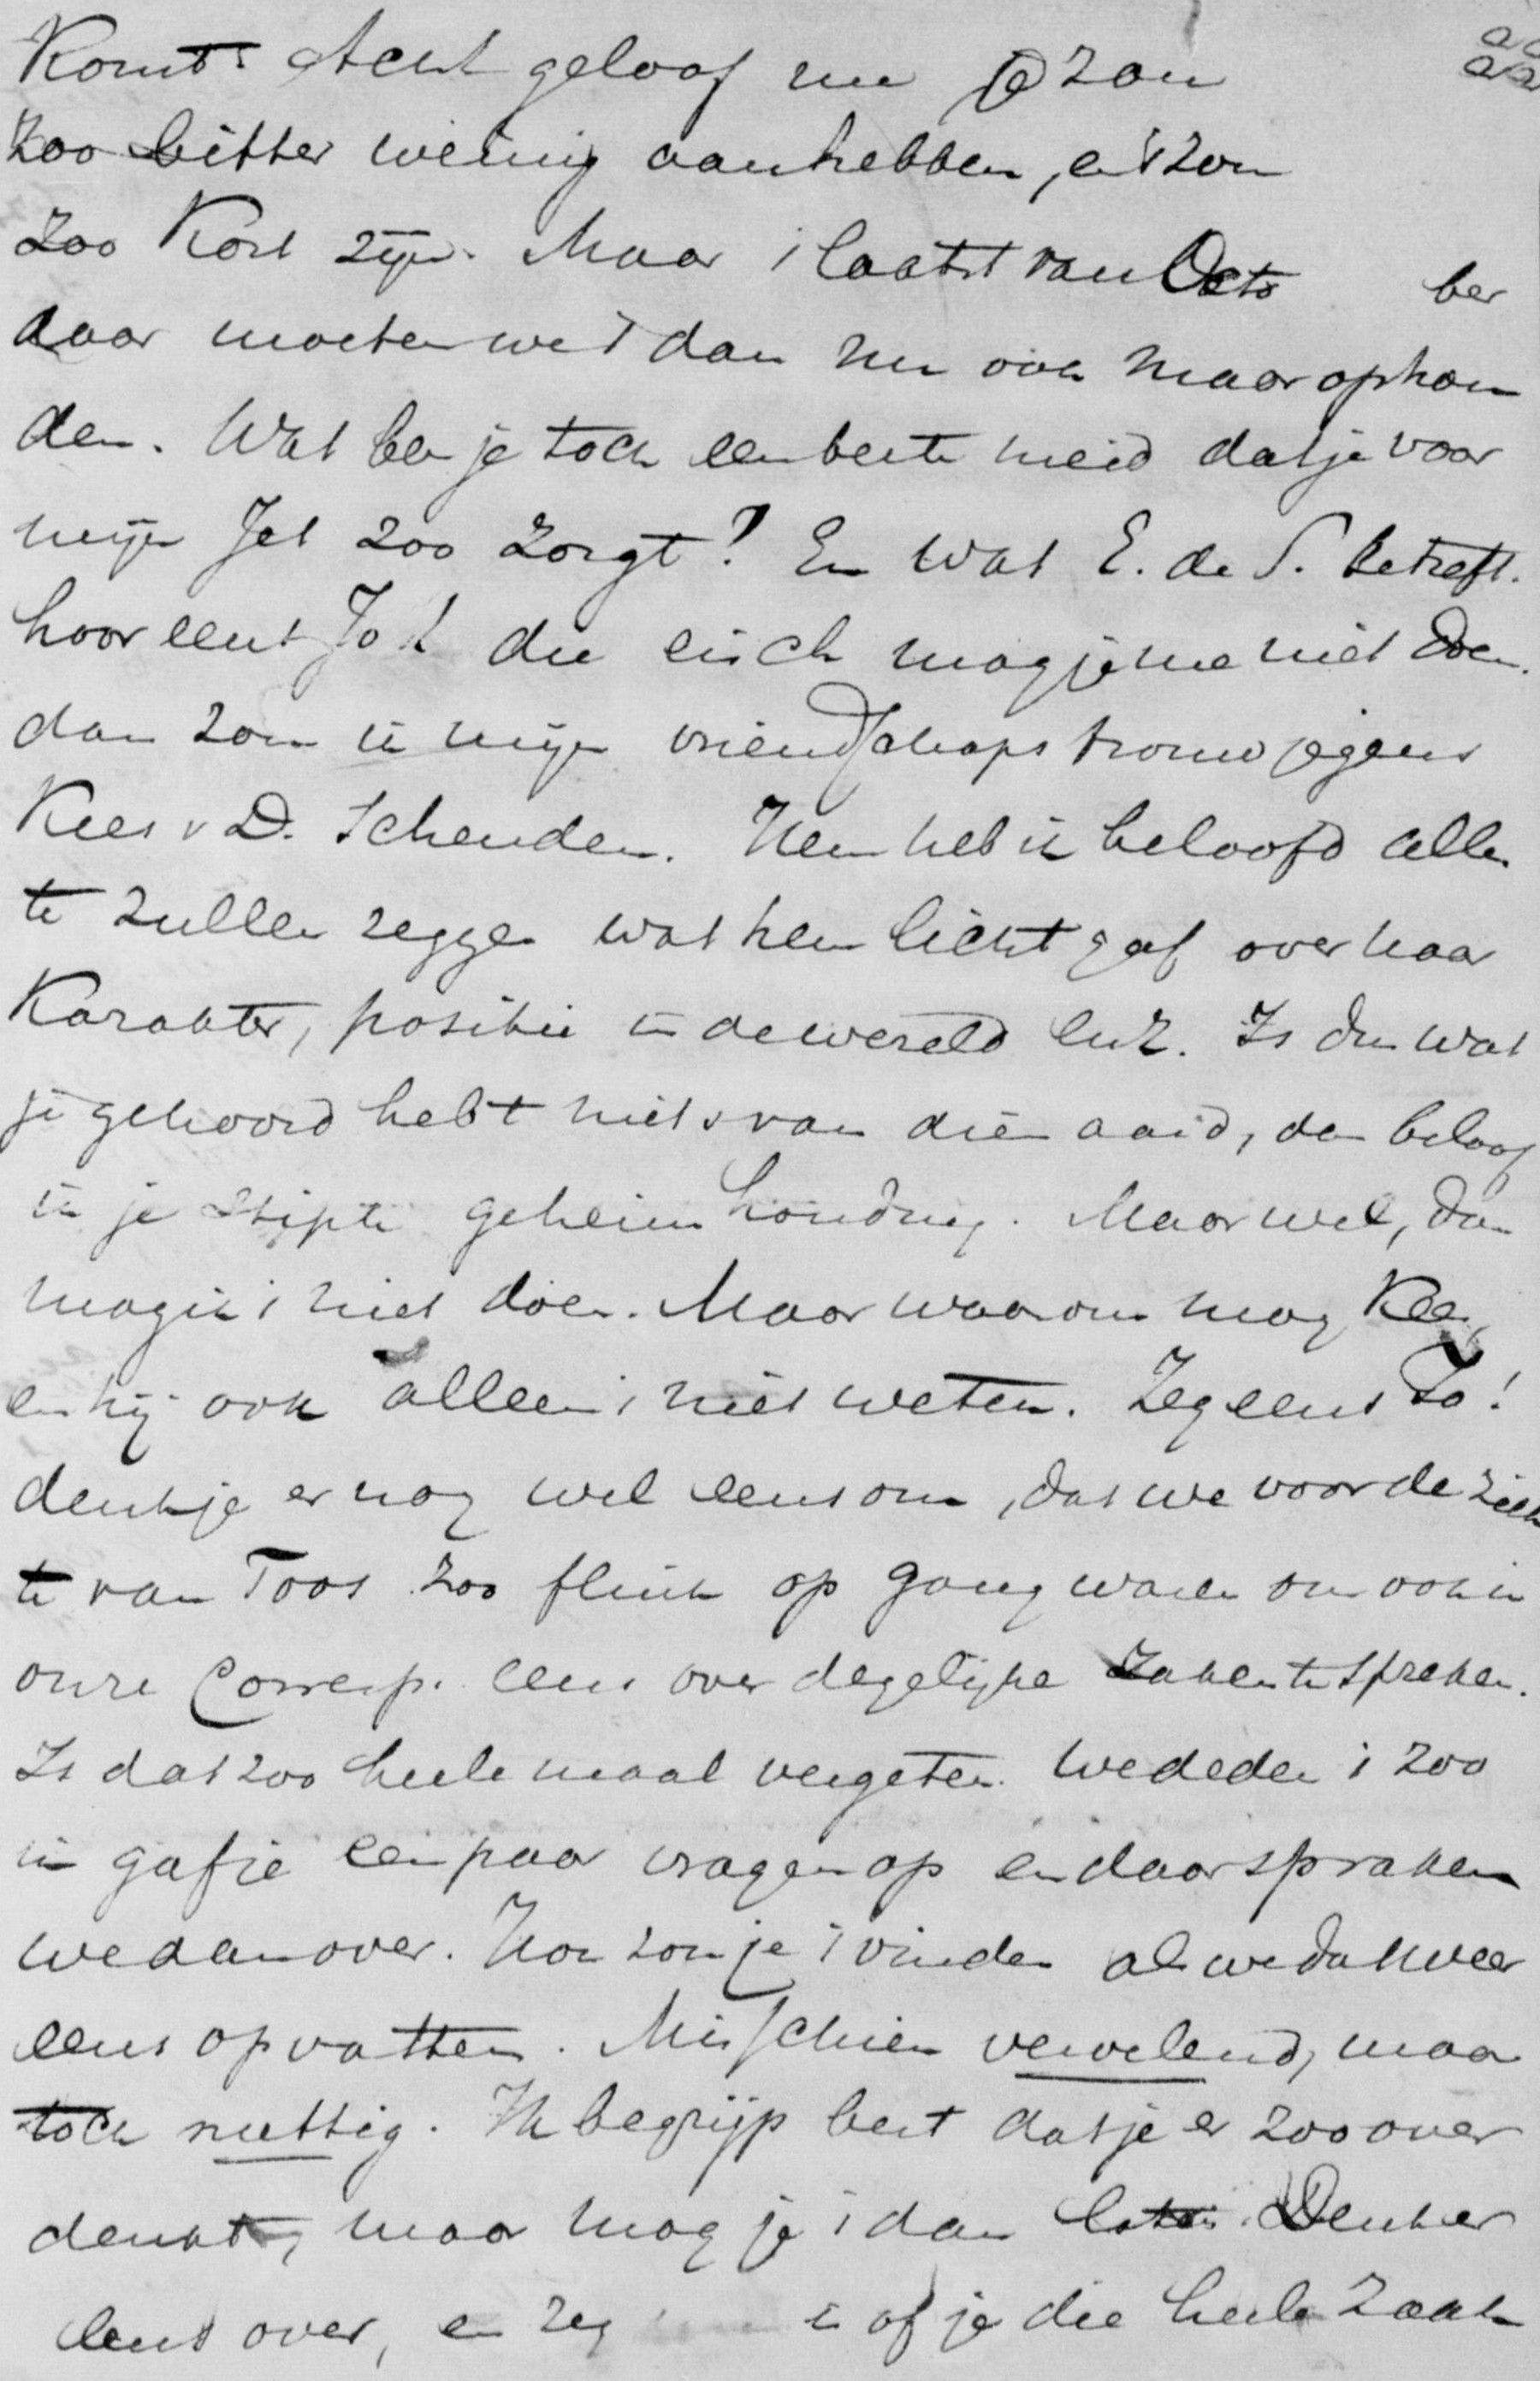 Komt. Acht geloof me je zou
zoo bitter weinig aan hebben, en 't zou
zoo kort zijn. Maar i laatst van Octo ber
daar moeten we i dan nu ook maar ophou
den. Wat ben je toch een beste meid dat je voor
mijn Jet zoo zorgt! En wat E. de S. betreft.
hoor eens Jo! die eisch mag je me niet doen.
dan zou ik mijn vriendschaps trouw jegens
Kees v D. schenden. Hem heb ik beloofd alles
te zullen zeggen wat hem licht gaf over haar
Karakter, positie in de wereld enz. Is dus wat
je gehoord hebt niets van dien aard, dan beloof
ik je stipte geheimhouding. Maar wel, dan
mag ik i niet doen. Maar waarom mag Kees,
en hij ook alleen i niet weten. Zeg eens Jo!
denk je er nog wel eens om, dat we voor de ziek
te van Toos zoo flink op gang waren om ook in
onze Corresp. eens over degelijke zaken te spreken.
Is dat zoo heelemaal vergeten. We deden i zoo
ik gaf je een paar vragen op en daar spraken
we dan over. Hoe zou je i vinden als we dat weer
eens opvatten. Misschien vervelend, maar
toch nuttig. Ik begrijp best dat je er zoo over
denkt, maar mag je i dan laten. Denk er
eens over, en zeg of je die heele zaak